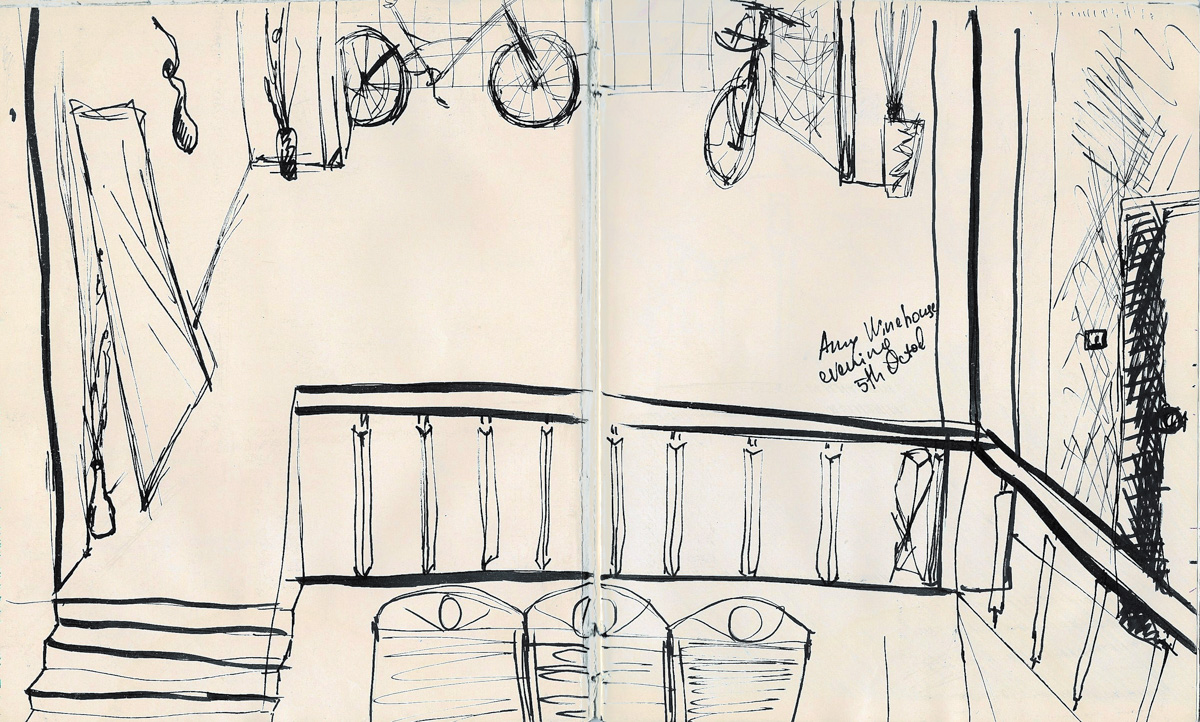 Amy Winehouse
evening
5th Octob